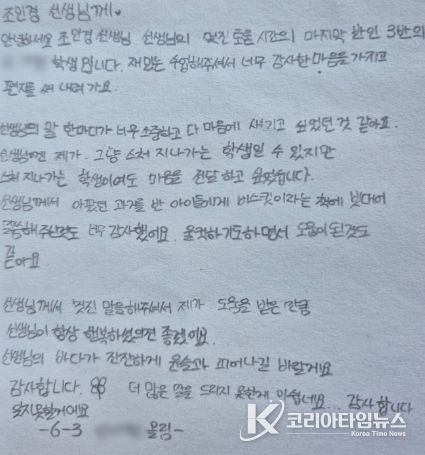 조인경 선생님께♥
안녕하세요 조인경 선생님 선생님의 멋진 도움 시간의 마지막 반인 3반의
학생 입니다. 재밌는 수업해주셔서 너무 감사한 마음을 가지고
편지를 써 내려 가요.
선생님의 말 한마디가 너무 소중하고 다 마음에 새기고 싶었던 것 같아요.
선생님에겐 제가 그냥 스쳐 지나가는 학생일 수 있지만
스쳐 지나가는 학생이여도 마음을 전달 하고 싶었습니다.
선생님께서 아팠던 과거를 반 아이들에게 비스킷이라는 책에 빗대어
말씀해주신것도 너무 감사했어요. 울컥하기도하면서 도움이 된것도
같아요
선생님께서 멋진 말을해주셔서 제가 도움을 받은 만큼
선생님이 항상 행복하셨으면 좋겠어요.
선생님의 바다가 잔잔하게 윤슬과 피어나길 바랄게요
감사합니다. 더 많은 말을 드리지 못한게 아쉽네요.. 감사합니다
잊지못할거에요
-6-3 올림-
K 코리아타임뉴스
Korea Time News